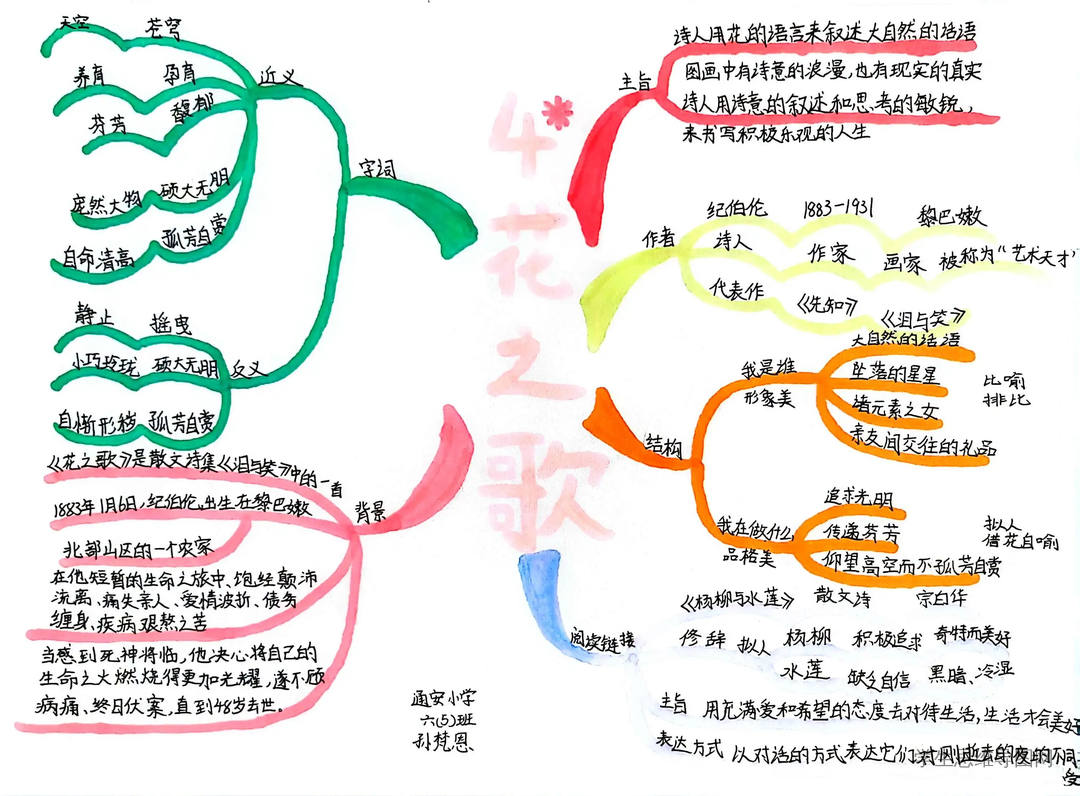 4*花之歌
字词
近义
天空 苍穹
养育 孕育
芬芳 馥郁
庞然大物 硕大无朋
自命清高 孤芳自赏
反义
静止 摇曳
小巧玲珑 硕大无朋
自惭形秽 孤芳自赏
背景
《花之歌》是散文诗集《泪与笑》中的一首
1883年1月6日,纪伯伦出生在黎巴嫩
北部山区的一个农家
在他短暂的生命之旅中、饱经颠沛
流离、痛失亲人、爱情波折、债务
缠身、疾病艰熬之苦
当感到死神将临,他决心将自己的
生命之火燃烧得更加光耀,遂不顾
病痛、终日伏案,直到48岁去世。
主旨
诗人用花的语言来叙述大自然的话语
图画中有诗意的浪漫,也有现实的真实
诗人用诗意的叙述和思考的敏锐,
来书写积极乐观的人生
作者
纪伯伦 1883-1931 黎巴嫩
诗人 作家 画家 被称为“艺术天才”
代表作 《先知》 《泪与笑》
结构
我是谁
形象美
大自然的话语
坠落的星星
诸元素之女
亲友间交往的礼品
比喻
排比
我在做什么
品格美
追求光明
传递芬芳
仰望高空而不孤芳自赏
拟人
借花自喻
阅读链接
《杨柳与水莲》 散文诗 宗白华
修辞 拟人 杨柳 积极追求 奇特而美好
水莲 缺乏自信 黑暗、冷湿
主旨 用充满爱和希望的态度去对待生活,生活才会美好
表达方式 以对话的方式表达它们对刚逝去的夜的不同
受
通安小学
六(5)班
孙梵恩
学生思维导图网